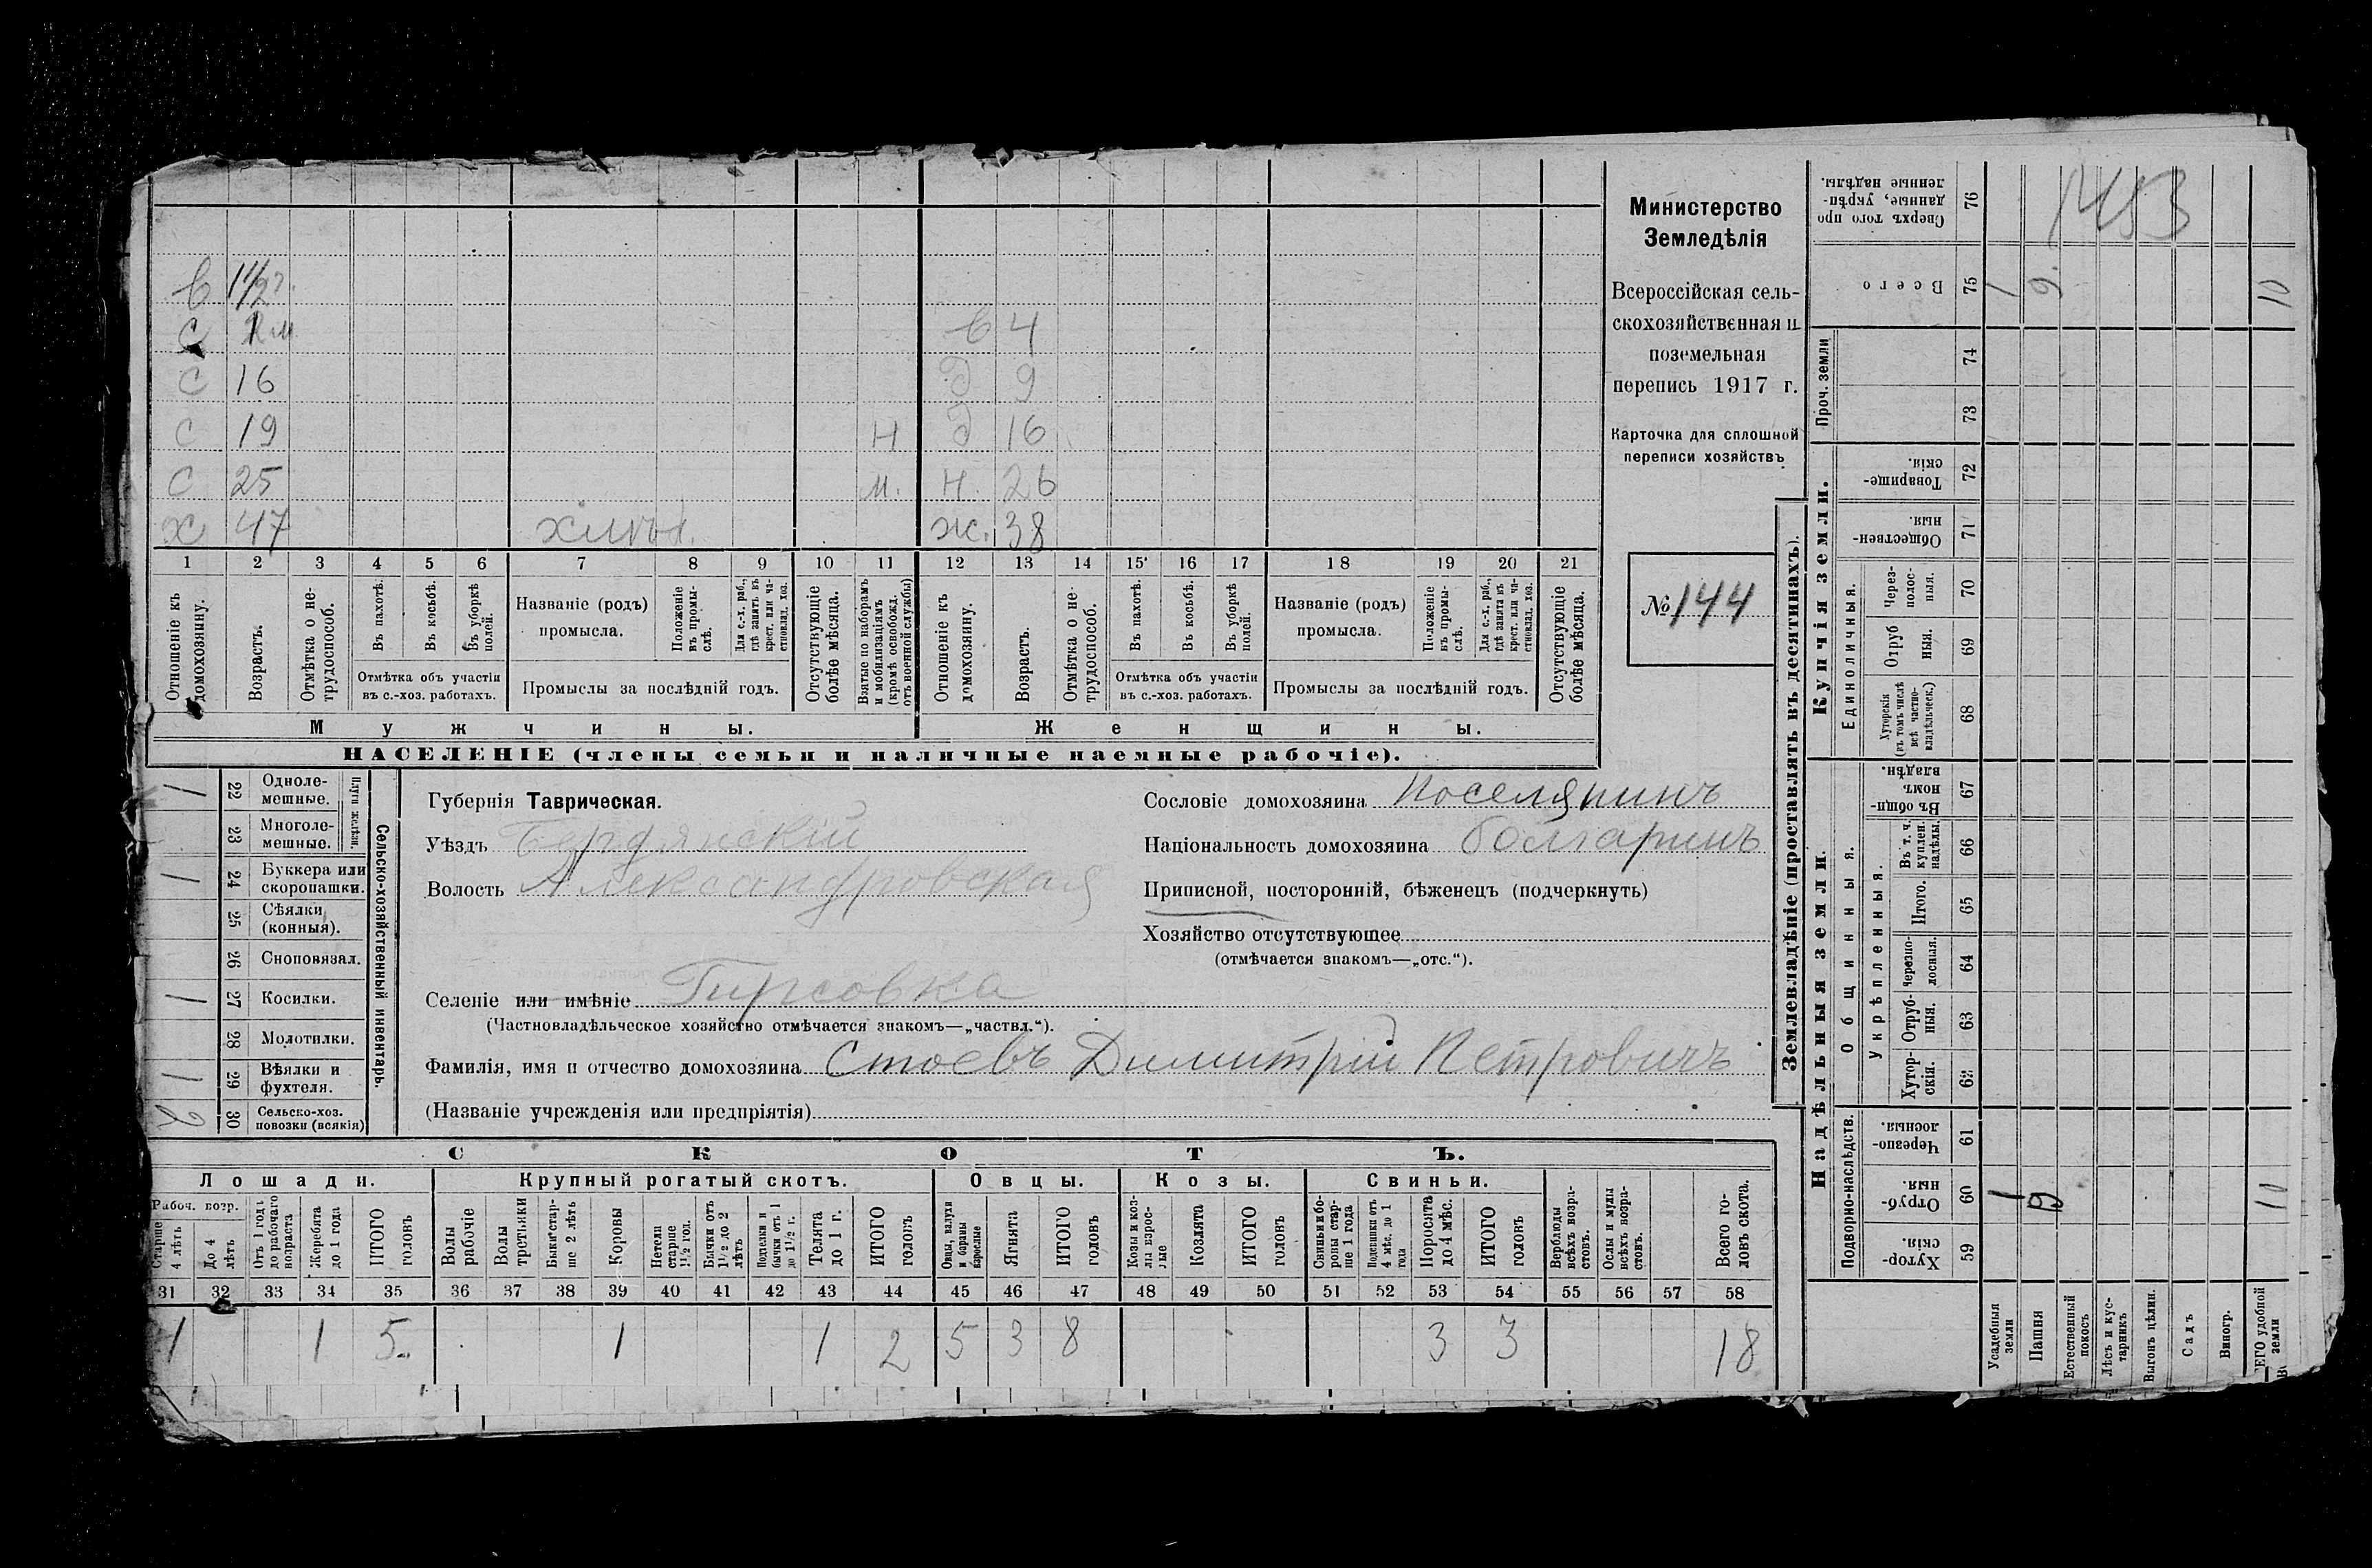 в 1 1/2 г.
с в 4
с 16 д 9
с 19 н д 16
с 25 м. н. 26
х 47 ж. 38
1 2 3 4 5 6 7 8 9 10 11 12 13 14 15 16 17 18 19 20 21
Отношеніе къ домохозяину.
Возрастъ.
Отмѣтка о не-трудоспособ.
Въ пахотѣ.
Въ косьбѣ.
Въ уборкѣ полей.
Отмѣтка объ участіи въ с.-хоз. работахъ.
Названіе (родъ) промысла.
Положеніе въ промы-слѣ.
Для с.-х. раб., гдѣ занятъ въ крест. или ча-стновлад. хоз.
Промыслы за послѣдній годъ.
Отсутствующіе болѣе мѣсяца.
Взятые по наборамъ и мобилизаціямъ (кромѣ освобожд. отъ военной службы)
Отношеніе къ домохозяину.
Возрастъ.
Отмѣтка о не-трудоспособ.
Въ пахотѣ.
Въ косьбѣ.
Въ уборкѣ полей.
Отмѣтка объ участіи въ с.-хоз. работахъ.
Названіе (родъ) промысла.
Положеніе въ промы-слѣ.
Для с.-х. раб., гдѣ занята въ крест. или ча-стновлад. хоз.
Промыслы за послѣдній годъ.
Отсутствующіе болѣе мѣсяца.
Мужчины. Женщины.
НАСЕЛЕНІЕ (члены семьи и наличные наемные рабочіе).
Министерство
Земледѣлія
Всероссійская сель-
скохозяйственная и
поземельная
перепись 1917 г.
Карточка для сплошной
переписи хозяйствъ
№ 144
Сельско-хозяйственный инвентарь.
Плуги желѣзн.
1 22 Однолемешные.
23 Многолемешные.
1 24 Буккера или скоропашки.
25 Сѣялки (конныя).
26 Сноповязал.
1 27 Косилки.
28 Молотилки.
1 29 Вѣялки и фухтеля.
2 30 Сельско-хоз. повозки (всякія)
Губернія Таврическая.
Уѣздъ Бердянскій
Волость Александровская
Селеніе или имѣніе Гирсовка
(Частновладѣльческое хозяйство отмѣчается знакомъ—„частвл.“).
Фамилія, имя и отчество домохозяина Стоевъ Димитрій Петровичъ
(Названіе учрежденія или предпріятія)
Сословіе домохозяина Поселянинъ
Національность домохозяина болгаринъ
Приписной, посторонній, бѣженецъ (подчеркнуть)
Хозяйство отсутствующее
(отмѣчается знакомъ—„отс.“).
СКОТЪ.
Лошади. Крупный рогатый скотъ. Овцы. Козы. Свиньи.
Рабоч. возр.
Старше 4 лѣтъ
До 4 лѣтъ
Отъ 1 года до рабочаго возраста
Жеребята до 1 года
ИТОГО головъ
Волы рабочіе
Волы третьяки
Быки стар-ше 2 лѣтъ
Коровы
Нетели старше 1 1/2 год.
Бычки отъ 1 1/2 до 2 лѣтъ
Подтелки и бычки отъ 1 до 1 1/2 г.
Телята до 1 г.
ИТОГО головъ
Овцы, валухи и бараны взрослые
Ягнята
ИТОГО головъ
Козы и коз-лы взрос-лые
Козлята
ИТОГО головъ
Свиньи и бо-ровы стар-ше 1 года
Подсвинки отъ 4 мѣс. до 1 года
Поросята до 4 мѣс.
ИТОГО головъ
Верблюды всѣхъ возра-стовъ.
Ослы и мулы всѣхъ возра-стовъ.
Всего го-ловъ скота.
31 32 33 34 35 36 37 38 39 40 41 42 43 44 45 46 47 48 49 50 51 52 53 54 55 56 57 58
1 1 5 1 1 2 5 3 8 3 3 18
Землевладѣніе (проставлять въ десятинахъ).
Надѣльныя земли. Купчія земли.
Подворно-наслѣдств.
Общинныя.
Укрѣпленныя.
Единоличныя.
Проч. земли
76 Сверхъ того про-данные, укрѣп-ленные надѣлы.
1453
75 Всего 1 9. 10
74
73
72 Товарище-скія.
71 Обществен-ныя.
70 Через-полос-ныя.
69 Отруб-ныя.
68 Хуторскія (въ томъ числѣ всѣ частно-владѣльческ.)
67 Въ общин-номъ владѣн.
66 Въ т. ч. куплен. надѣлы.
65 Итого.
64 Черезпо-лосныя.
63 Отруб-ныя.
62 Хутор-скія.
61 Черезпо-лосныя.
60 Отруб-ныя. 1 9 10
59 Хутор-скія.
Усадебныя земли
Пашня
Естественный покосъ
Лѣсъ и кус-тарникъ
Выгонъ цѣлин.
Садъ
Виногр.
ЕГО удобной земли